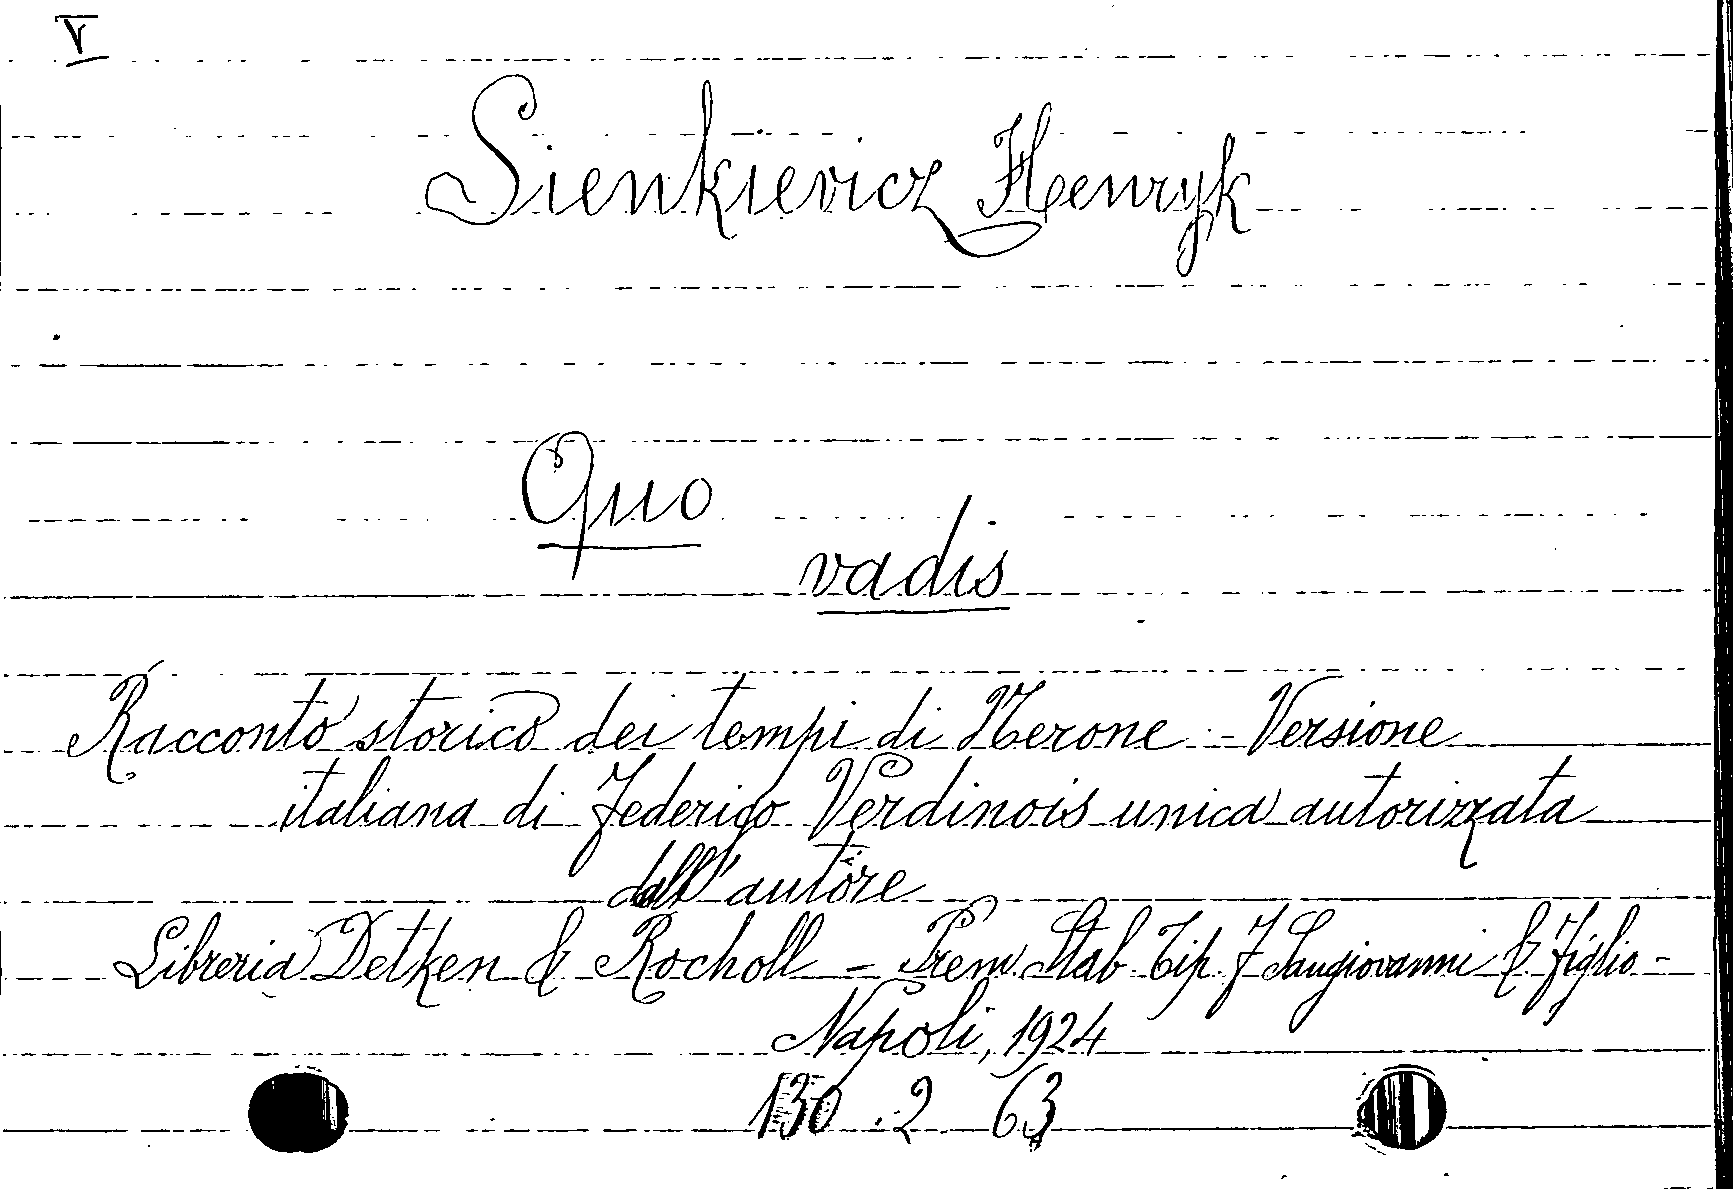 V
Sienkievicz Henryk
Quo
vadis
Racconto storico dei tempi di Nerone - Versione
italiana di Federigo Verdinois unica autorizzata
dall'autore
Libreria Detken & Rocholl - Prem. Stab Tip. F Sangiovanni & Figlio -
Napoli, 1924
130 . 2 63